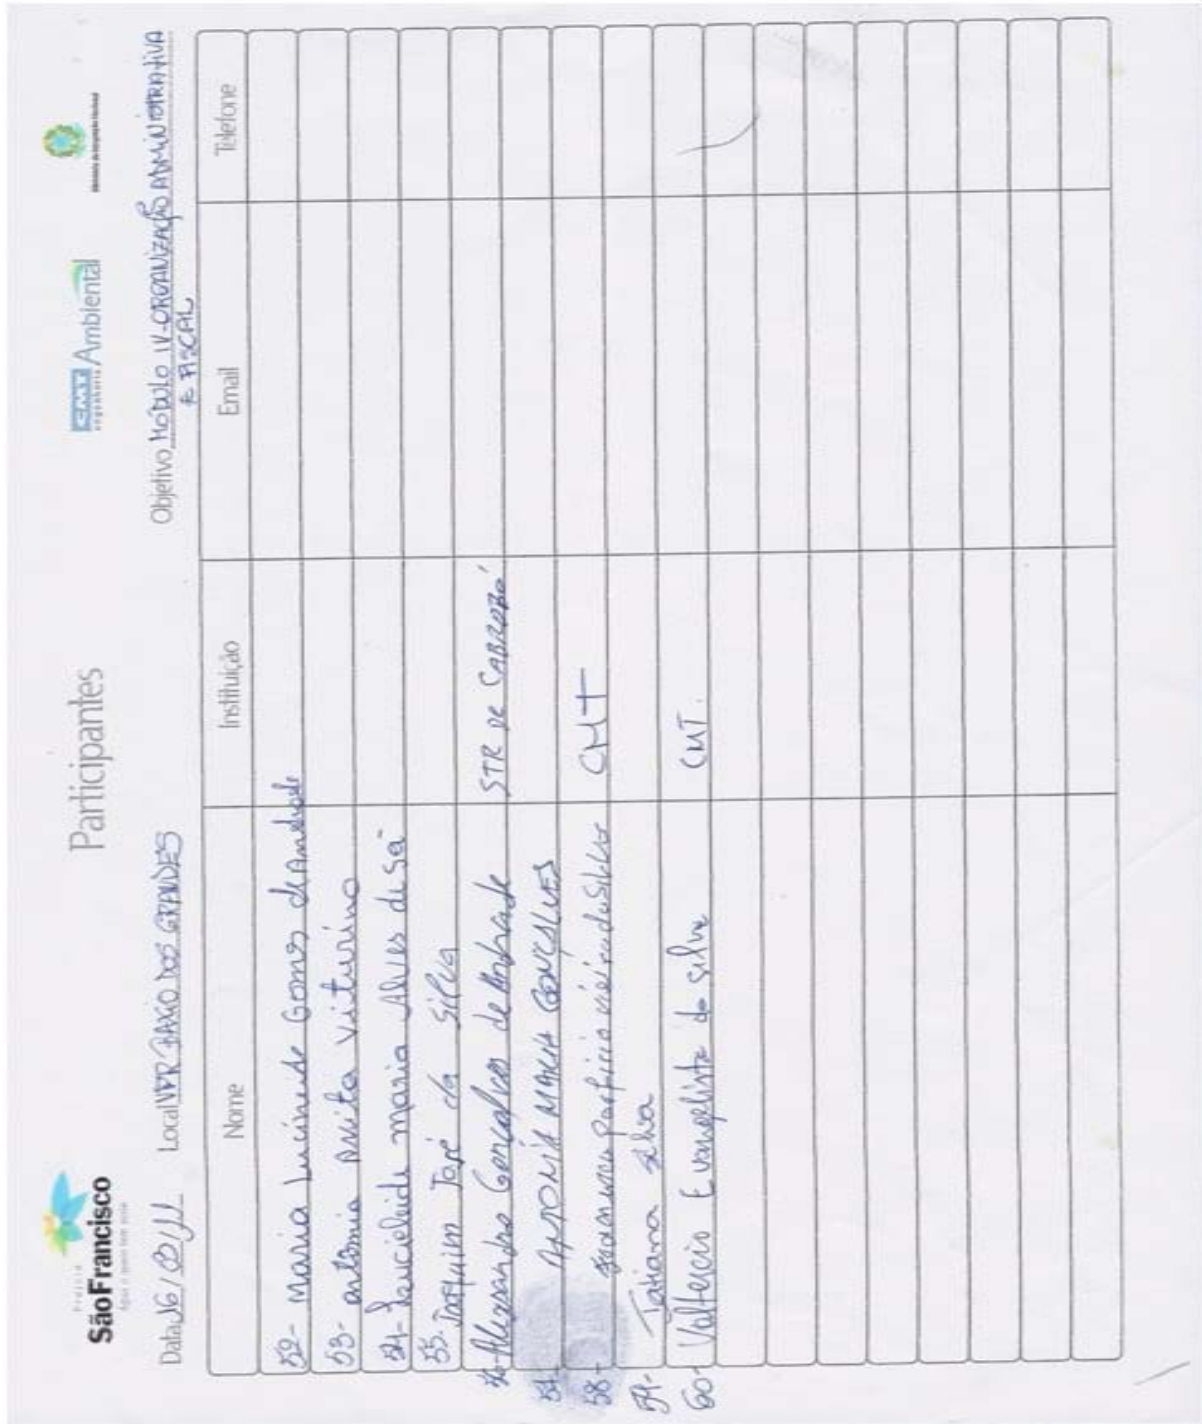 Projeto
São Francisco
Participantes
CMT Ambiental
engenharia
Ministério da Integração Nacional
Data 16/ /11 Local VPR BAXIO DOS GRANDES Objetivo MÓDULO IV-ORGANIZAÇÃO ADMINISTRATIVA
E FISCAL
Nome Instituição Email Telefone
52- Maria Lucineide Gomes de Andrade
53- antônia anita viturino
54- Laucicleide maria Alves de Sá
55. Joaquim José da Silva
56- Alexsandro Gonçalves de Andrade STR DE CABROBÓ
57- MARIA GONÇALVES
58- porfirio vieira da Silva CMT
59- Tatiana silva
60- Valtercio Evangelista da silva CMT.